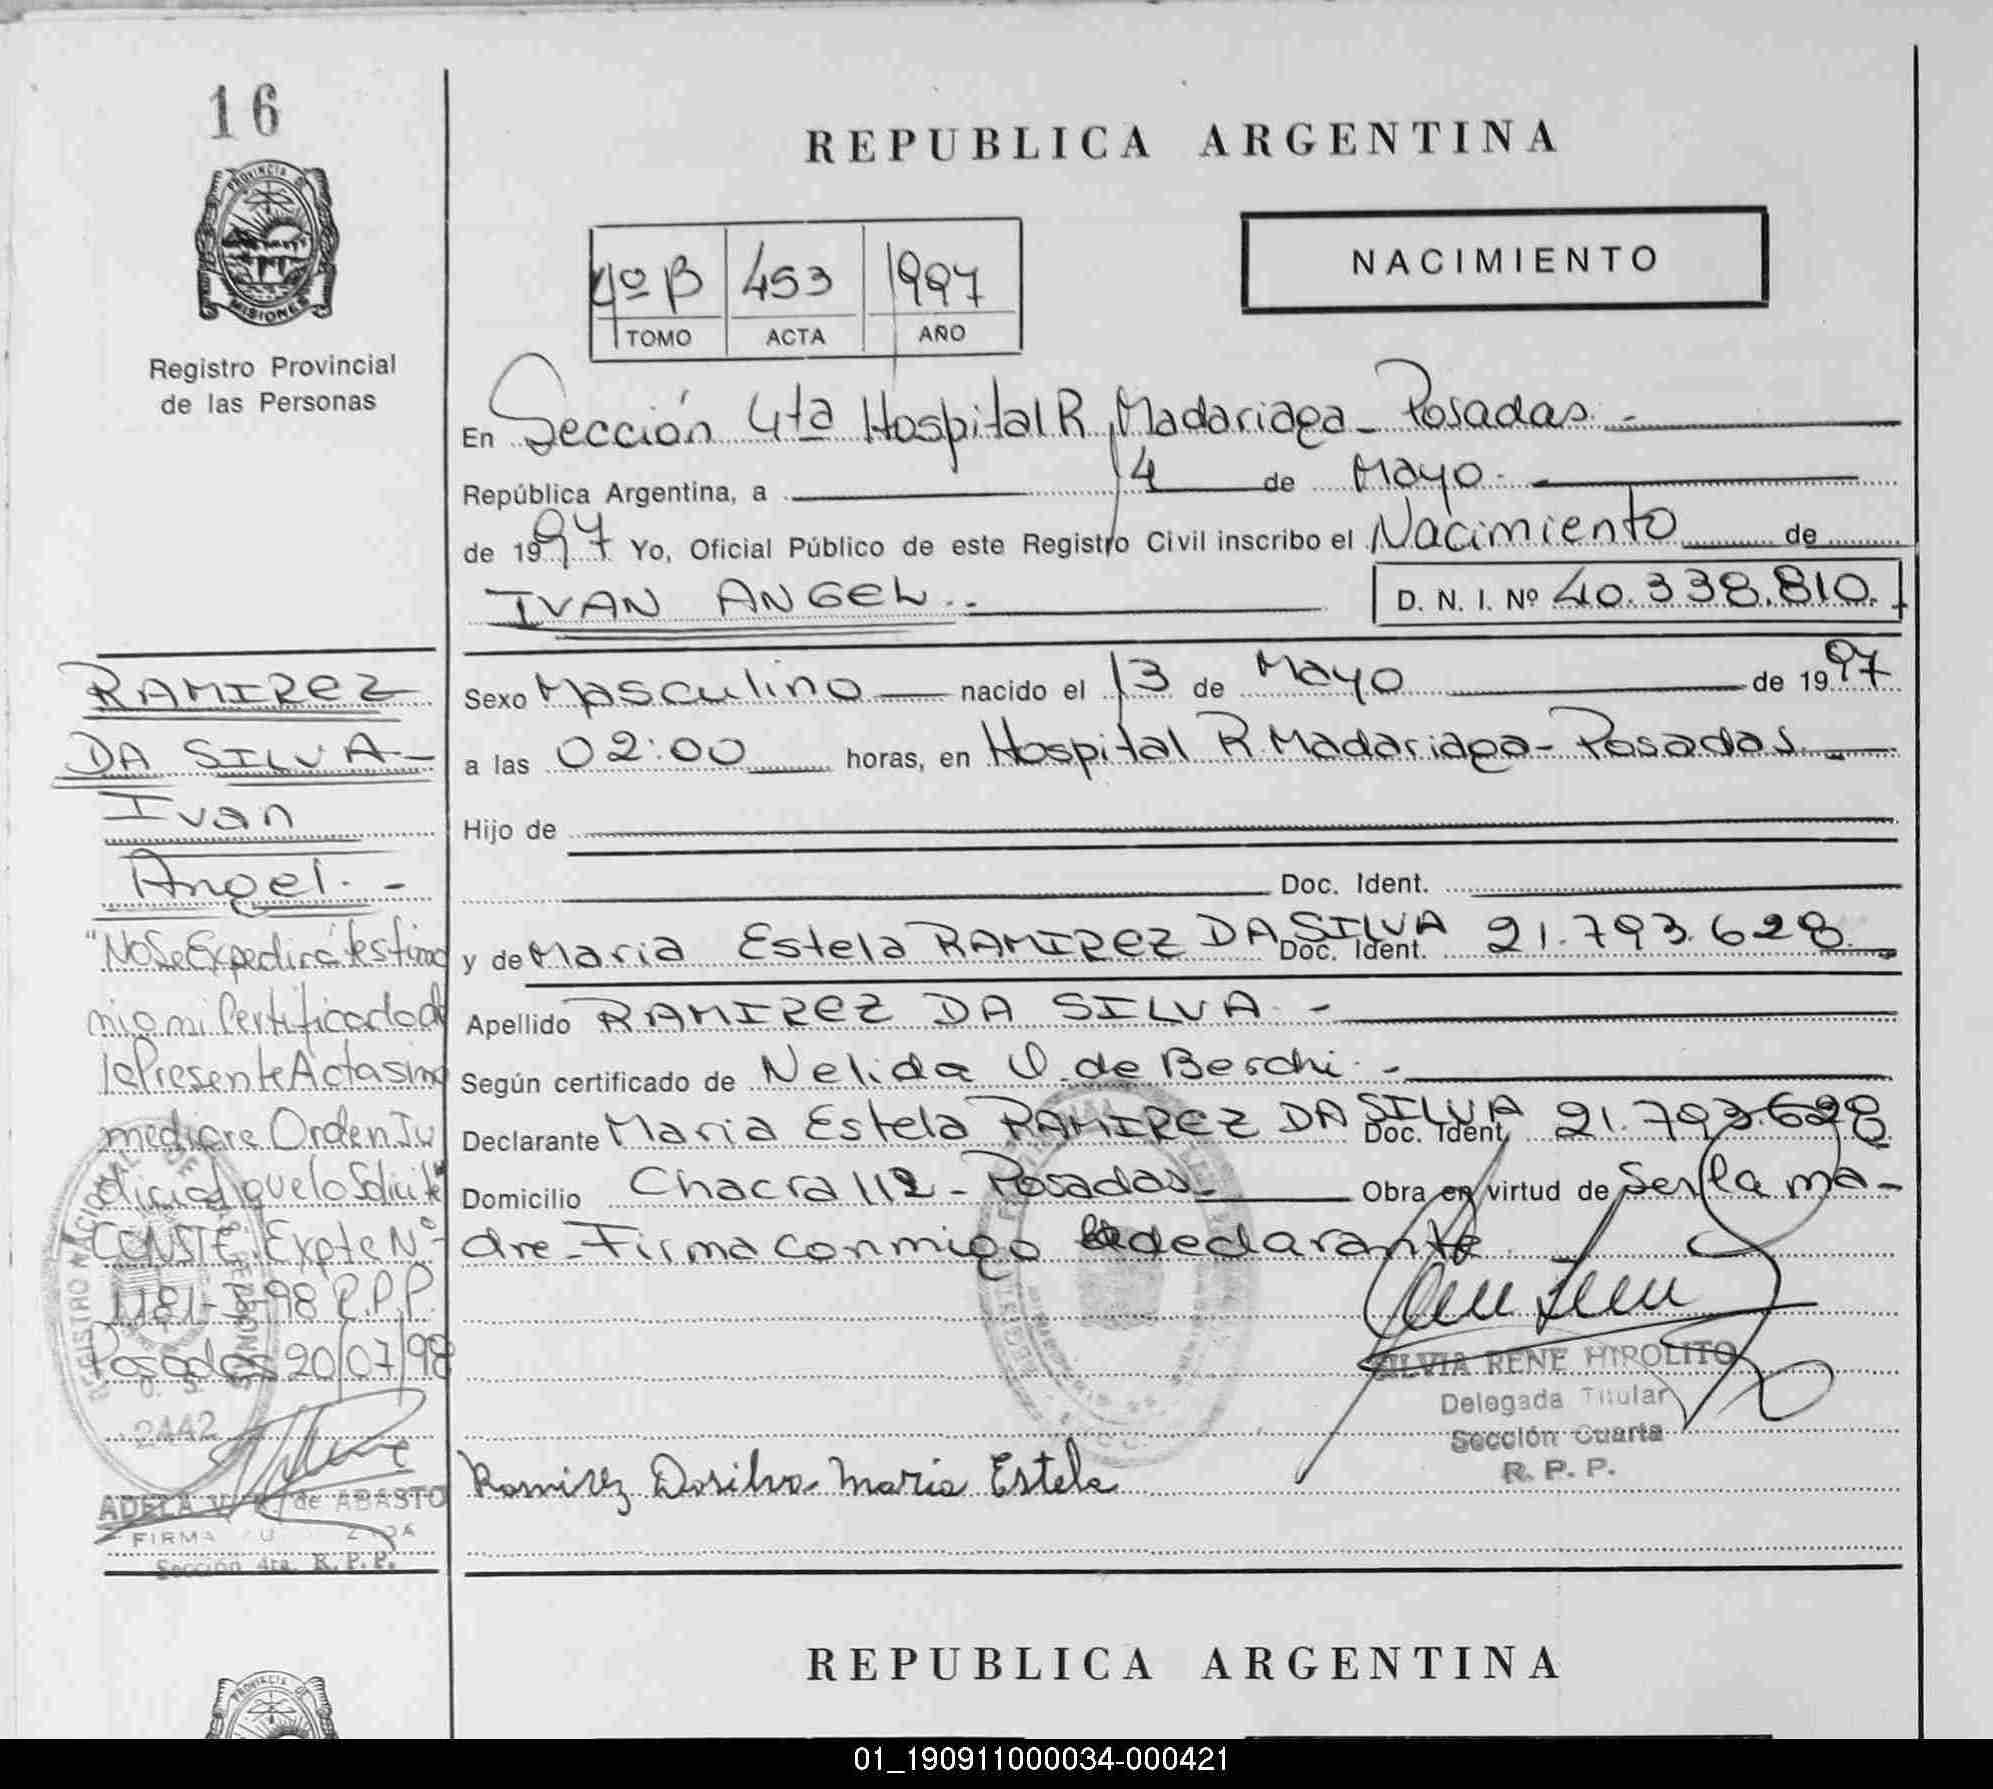 16
PROVINCIA DE
MISIONES
Registro Provincial
de las Personas
REPUBLICA ARGENTINA
NACIMIENTO
4º B 453 1997
TOMO ACTA AÑO
En Sección 4ta Hospital R. Madariaga - Posadas. -
República Argentina, a 14 de Mayo.
de 1997 Yo, Oficial Público de este Registro Civil inscribo el Nacimiento de
IVAN ANGEL.- D. N. I. Nº 40.338.810.
Sexo Masculino nacido el 13 de Mayo de 1997
a las 02:00 horas, en Hospital R. Madariaga - Posadas. -
Hijo de
Doc. Ident.
y de Maria Estela RAMIREZ DA SILVA Doc. Ident. 21.793.628.
Apellido RAMIREZ DA SILVA. -
Según certificado de Nelida O. de Berchi. -
Declarante Maria Estela RAMIREZ DA SILVA Doc. Ident. 21.793.628
Domicilio Chacra 112 - Posadas - Obra en virtud de Ser la ma-
dre - Firma conmigo la declarante
SILVIA RENE HIPOLITO
Delegada Titular
Sección Cuarta
R. P. P.
Ramirez Dasilva Maria Estela
RAMIREZ
DA SILVA -
Ivan
Angel. -
"No Se Expedirá testimo
nio ni Certificado de
la Presente Acta sin
mediare Orden Ju
dicial que lo Solicite"
CONSTE. Expte Nº
1181-I-98 R.P.P.
Posadas 20/07/98
2442
ADELA de ABASTO
FIRMA
Sección 4ta. R. P. P.
REPUBLICA ARGENTINA
01_190911000034-000421